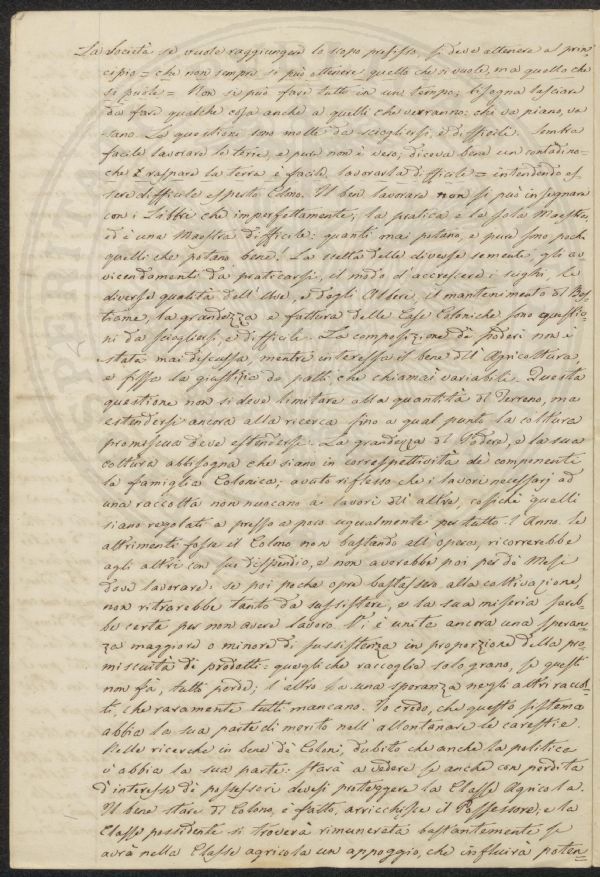 La Società se vuole raggiungere lo scopo prefisso si deve attenere al prin
cipio = che non sempre si può ottenere quello che si vuole, ma quello che
si puole = Non si può fare tutto in un tempo; bisogna lasciare
da fare qualche cosa anche a quelli che verranno; chi va piano, va
sano. Le questioni sono molte da sciogliersi, e difficili. Sembra
facile lavorare le terre, e pure non è vero; diceva bene un contadino=
che raspare la terra è facile, lavorarla difficile = intendendo es
sere difficile esperto Colono. Il ben lavorare non si può insegnare
con i Libbri che imperfettamente; la pratica è la sola Maestra,
ed è una Maestra difficile: quanti mai potano, e pure sono pochi
quelli che potano bene. La scelta delle diverse semente, gli av
vicendamenti da praticarsi, il modo d'accrescere i sughi, le
diverse qualità dell'Uve, e degli Alberi, il mantenimento del Bes
tiame, la grandezza e fattura delle Case Coloniche sono questio=
ni da sciogliersi, e difficili. La composizione de' poderi non è
stata mai discussa, mentre interessa il bene dell'Agricoltura,
e fissa la giustizia de patti, che chiamai variabili. Questa
questione non si deve limitare alla quantità del Terreno, ma
estendersi ancora alla ricerca fino a qual punto la coltura
promiscua deve estendersi. La grandezza del Podere, e la sua
coltura abbisogna che siano in correspettività de' componenti
la famiglia Colonica; avuto riflesso che i lavori necessarj ad
una raccolta non nuocano ai lavori dell'altra, cosiché quelli
siano regolati a presso a poco ugualmente per tutto l'Anno. Se
altrimenti fosse il Colono non bastando all'opera, ricorrerebbe
agli altri con suo dispendio, e non averebbe poi per dei Mesi
dove lavorare: se poi poche opre bastassero alla coltivazione,
non ritrarebbe tanto da sussistere, e la sua miseria sareb=
be certa per non avere lavoro. Vi è unita ancora una speran=
za maggiore o minore di sussistenza in proporzione della pro
miscuità di prodotti: quegli che raccoglie solo grano, se questi
non fà, tutto perde; l'altro ha una speranza negli altri raccol=
ti, che raramente tutti mancano. Io credo, che questo sistema
abbia la sua parte di merito nell'allontanare le carestie.
Nelle ricerche in bene de' Coloni, dubito che anche la politica
v'abbia la sua parte: starà a vedere se anche con perdita
d'interesse de possessori devesi proteggere la Classe Agricola.
Il bene stare del Colono, è fatto, arricchisce il Possessore, e la
Classe possidente si troverà rimunerata bastantemente se
avrà nella Classe agricola un appoggio, che influirà poten=